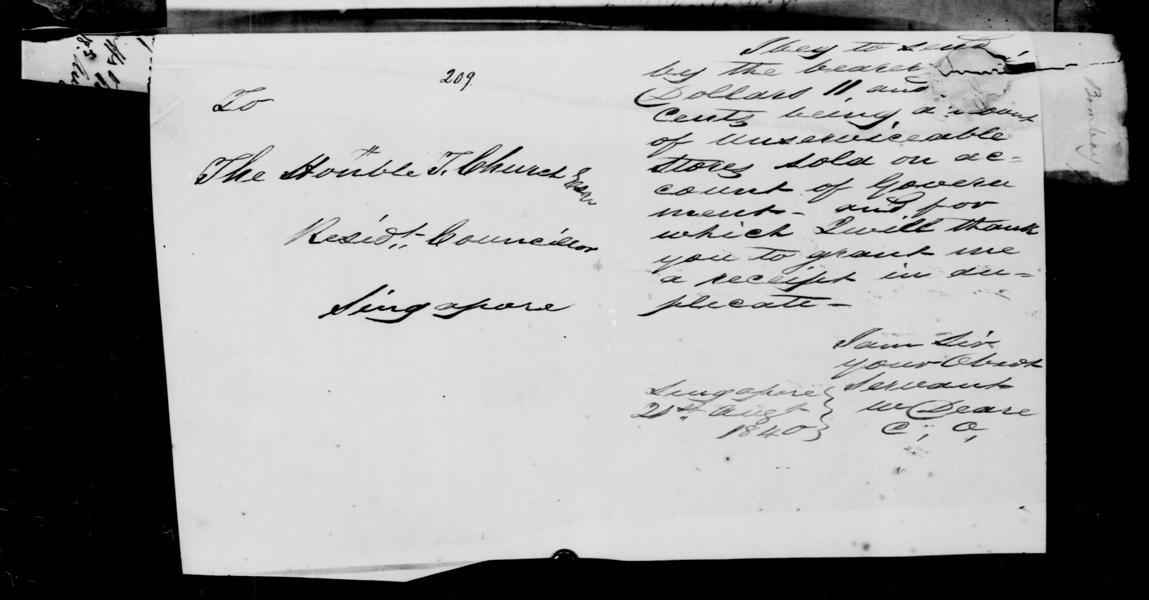 209
To
The Hon'ble T. Church Esqr
Residt. Councillor
Singapore
I beg to send
by the bearer
Dollars 11 and
Cents being amount
of unserviceable
Stores sold on ac=
count of Govern
ment - and for
which I will thank
you to grant me
a receipt in du=
plicate -
I am Sir
your Obedt
Servant
W Deare
C, O,
Singapore
21st Augt
1840